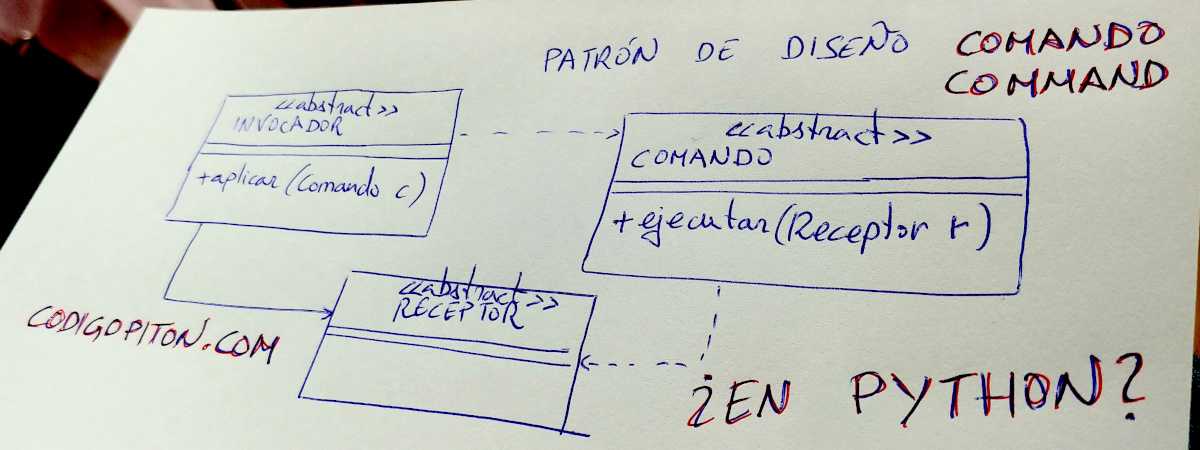 PATRÓN DE DISEÑO COMANDO
COMMAND
<<abstract>>
INVOCADOR
+aplicar(Comando c)
<<abstract>>
COMANDO
+ejecutar(Receptor r)
<<abstract>>
RECEPTOR
CODIGOPITON.COM
¿EN PYTHON?